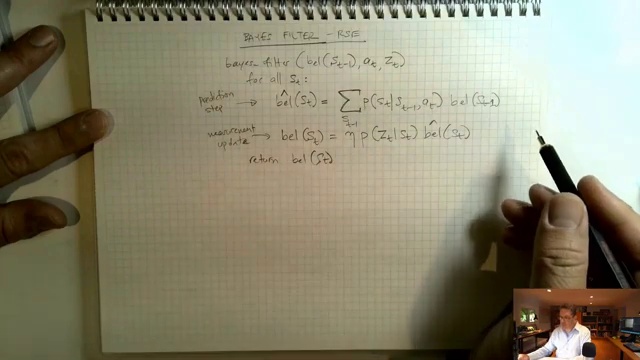 BAYES FILTER - RSE
bayes filter (bel(s_{t-1}), a_t, z_t)
for all s_t:
prediction step → bel̂(s_t) = ∑_{s_{t-1}} p(s_t|s_{t-1}, a_t) bel(s_{t-1})
measurement update → bel(s_t) = η p(z_t|s_t) bel̂(s_t)
return bel(s_t)